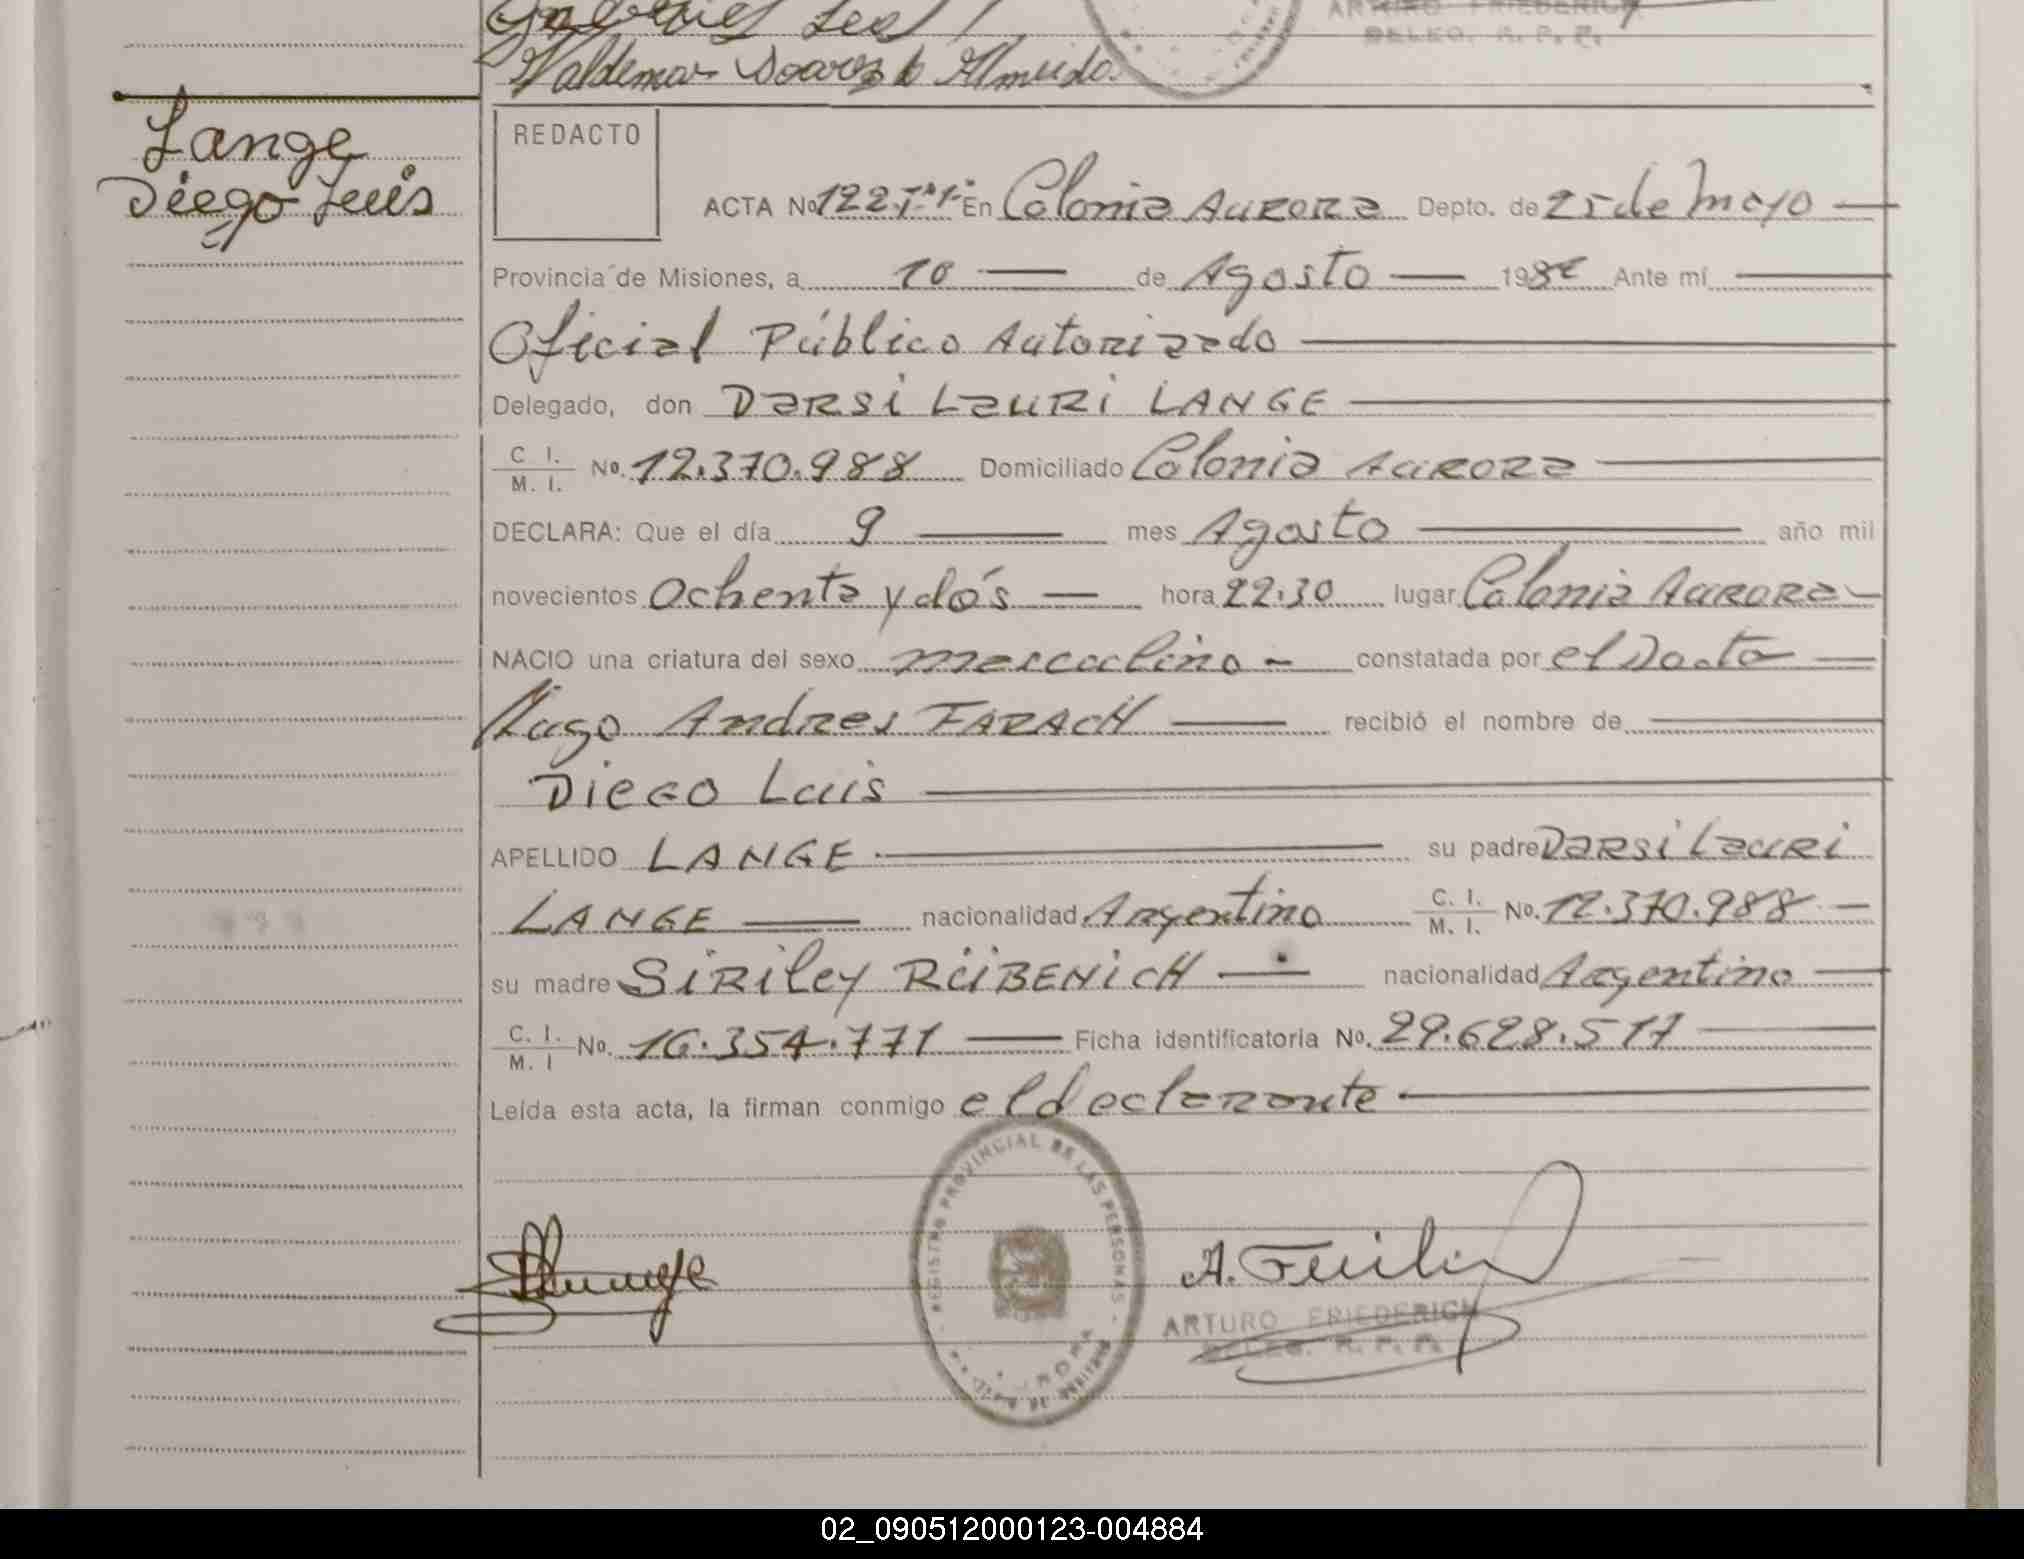 Valdemar Soares de Almeida
ARTURO FRIEDERICH
DELEG. R. P. P.
Lange
Diego Luis
REDACTO
ACTA No 122 T° 1° En Colonia Aurora Depto. de 25 de Mayo
Provincia de Misiones, a 10 de Agosto 1982 Ante mí
Oficial Público Autorizado
Delegado, don Darsi Lauri LANGE
C. I. / M. I. No. 12.370.988 Domiciliado Colonia Aurora
DECLARA: Que el día 9 mes Agosto año mil
novecientos Ochenta y dós hora 22.30 lugar Colonia Aurora
NACIO una criatura del sexo masculino constatada por el Docto
Hugo Andres FARACH recibió el nombre de
Diego Luis
APELLIDO LANGE su padre Darsi Lauri
LANGE nacionalidad Argentino C. I. / M. I. No. 12.370.988
su madre SiRiley RÜBENiCH nacionalidad Argentino
C. I. / M. I No. 16.354.771 Ficha identificatoria No. 29.628.517
Leída esta acta, la firman conmigo el declarante
REGISTRO PROVINCIAL DE LAS PERSONAS
ARTURO FRIEDERICH
DELEG. R. P. P.
02_090512000123-004884